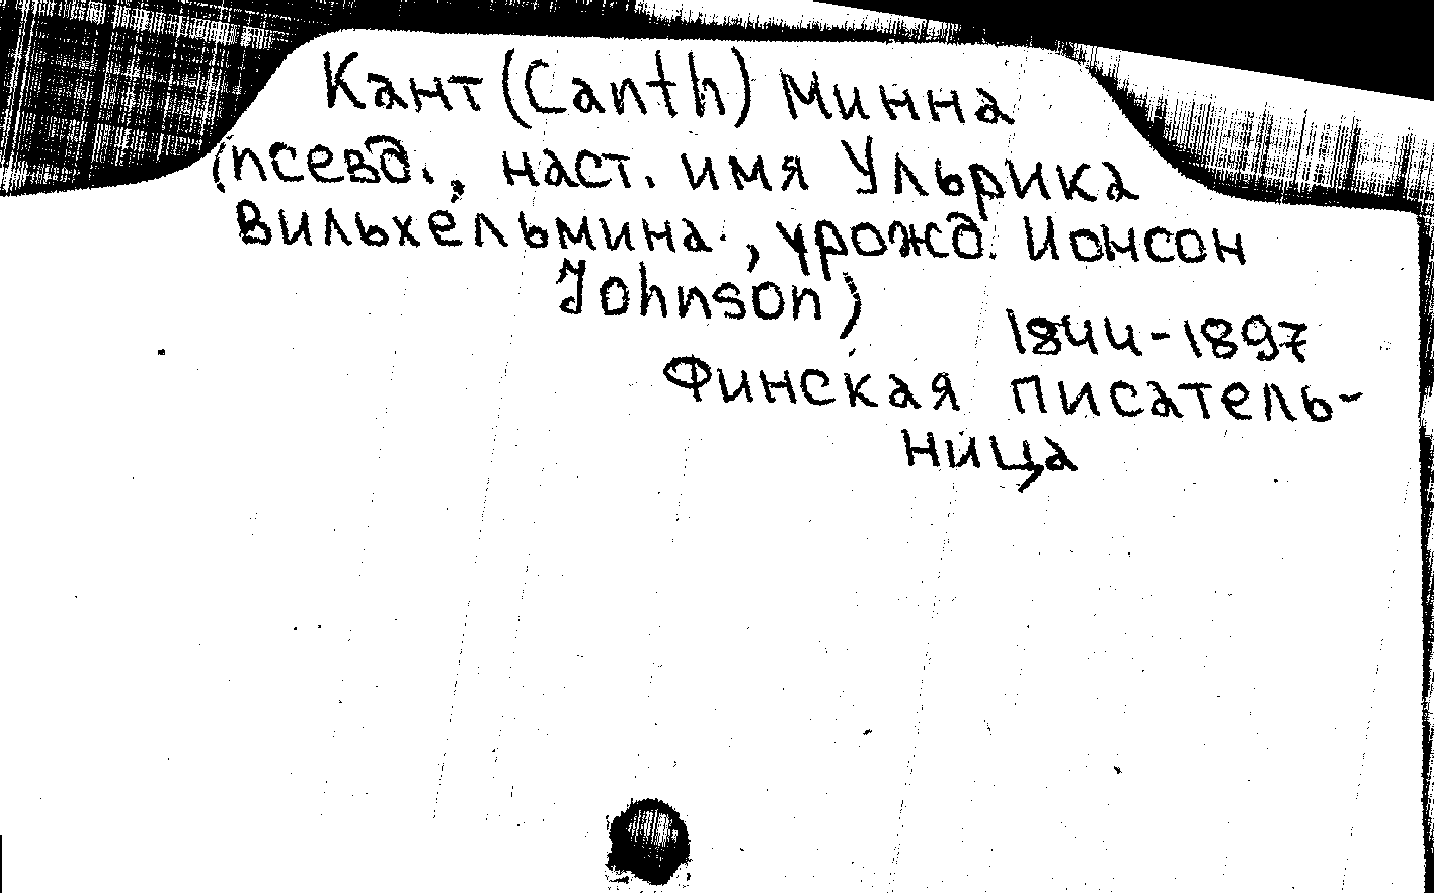 Кант (Canth) Минна
(псевд., наст. имя Ульрика
Вильхельмина, урожд. Ионсон
Johnson)
1844-1897
Финская писатель-
ница